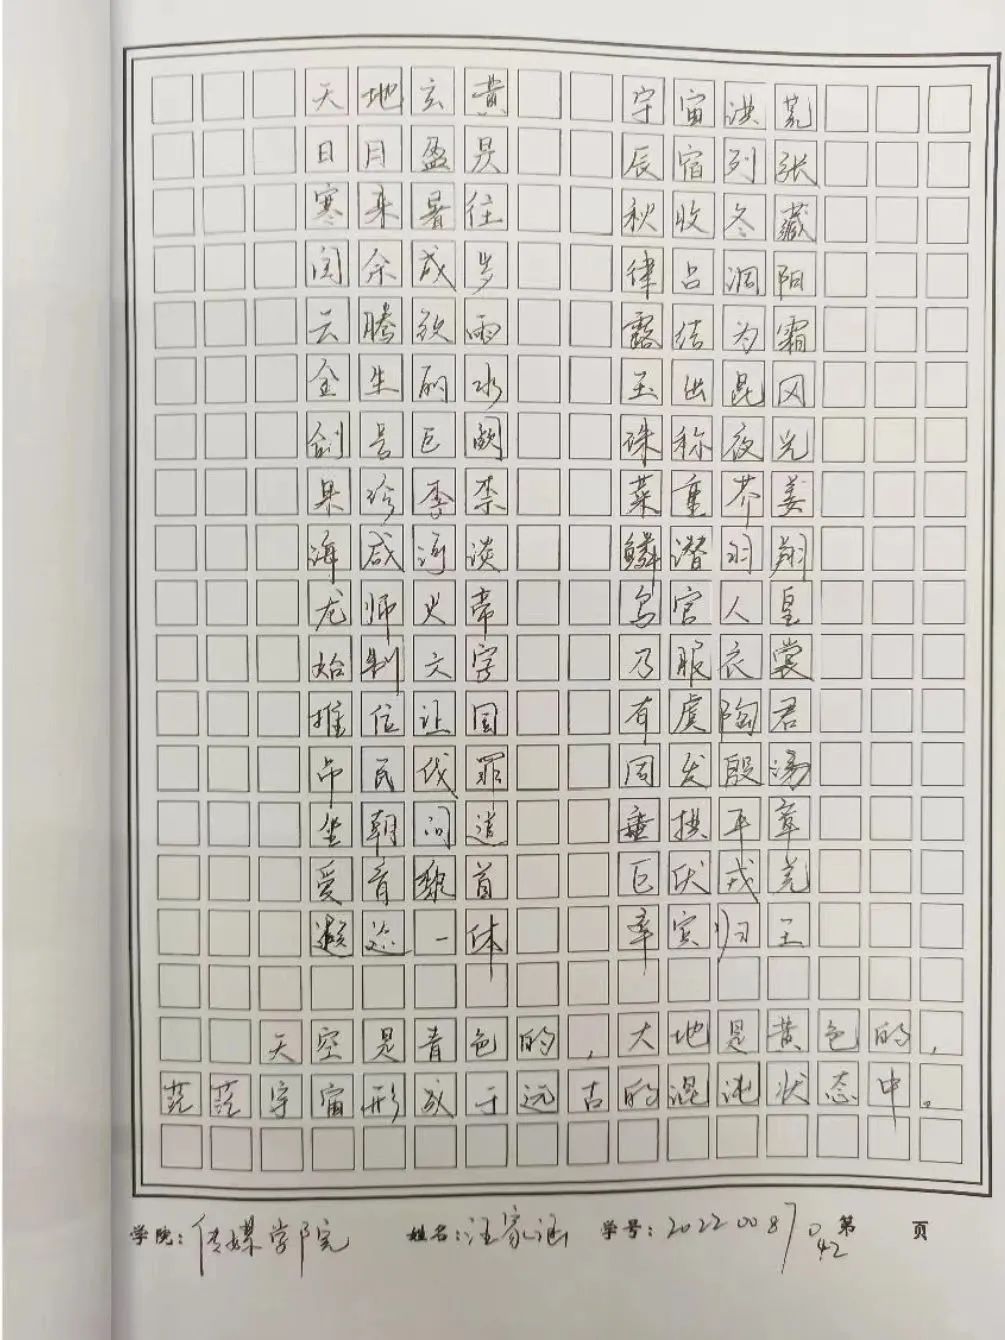 天地玄黄 宇宙洪荒
日月盈昃 辰宿列张
寒来暑往 秋收冬藏
闰余成岁 律吕调阳
云腾致雨 露结为霜
金生丽水 玉出昆冈
剑号巨阙 珠称夜光
果珍李柰 菜重芥姜
海咸河淡 鳞潜羽翔
龙师火帝 鸟官人皇
始制文字 乃服衣裳
推位让国 有虞陶君
吊民伐罪 周发殷汤
坐朝问道 垂拱平章
爱育黎首 臣伏戎羌
遐迩一体 率宾归王
天空是青色的，大地是黄色的，
茫茫宇宙形成于远古的混沌状态中。
学院：传媒学院 姓名：汪家涵 学号：20220087042 第 页